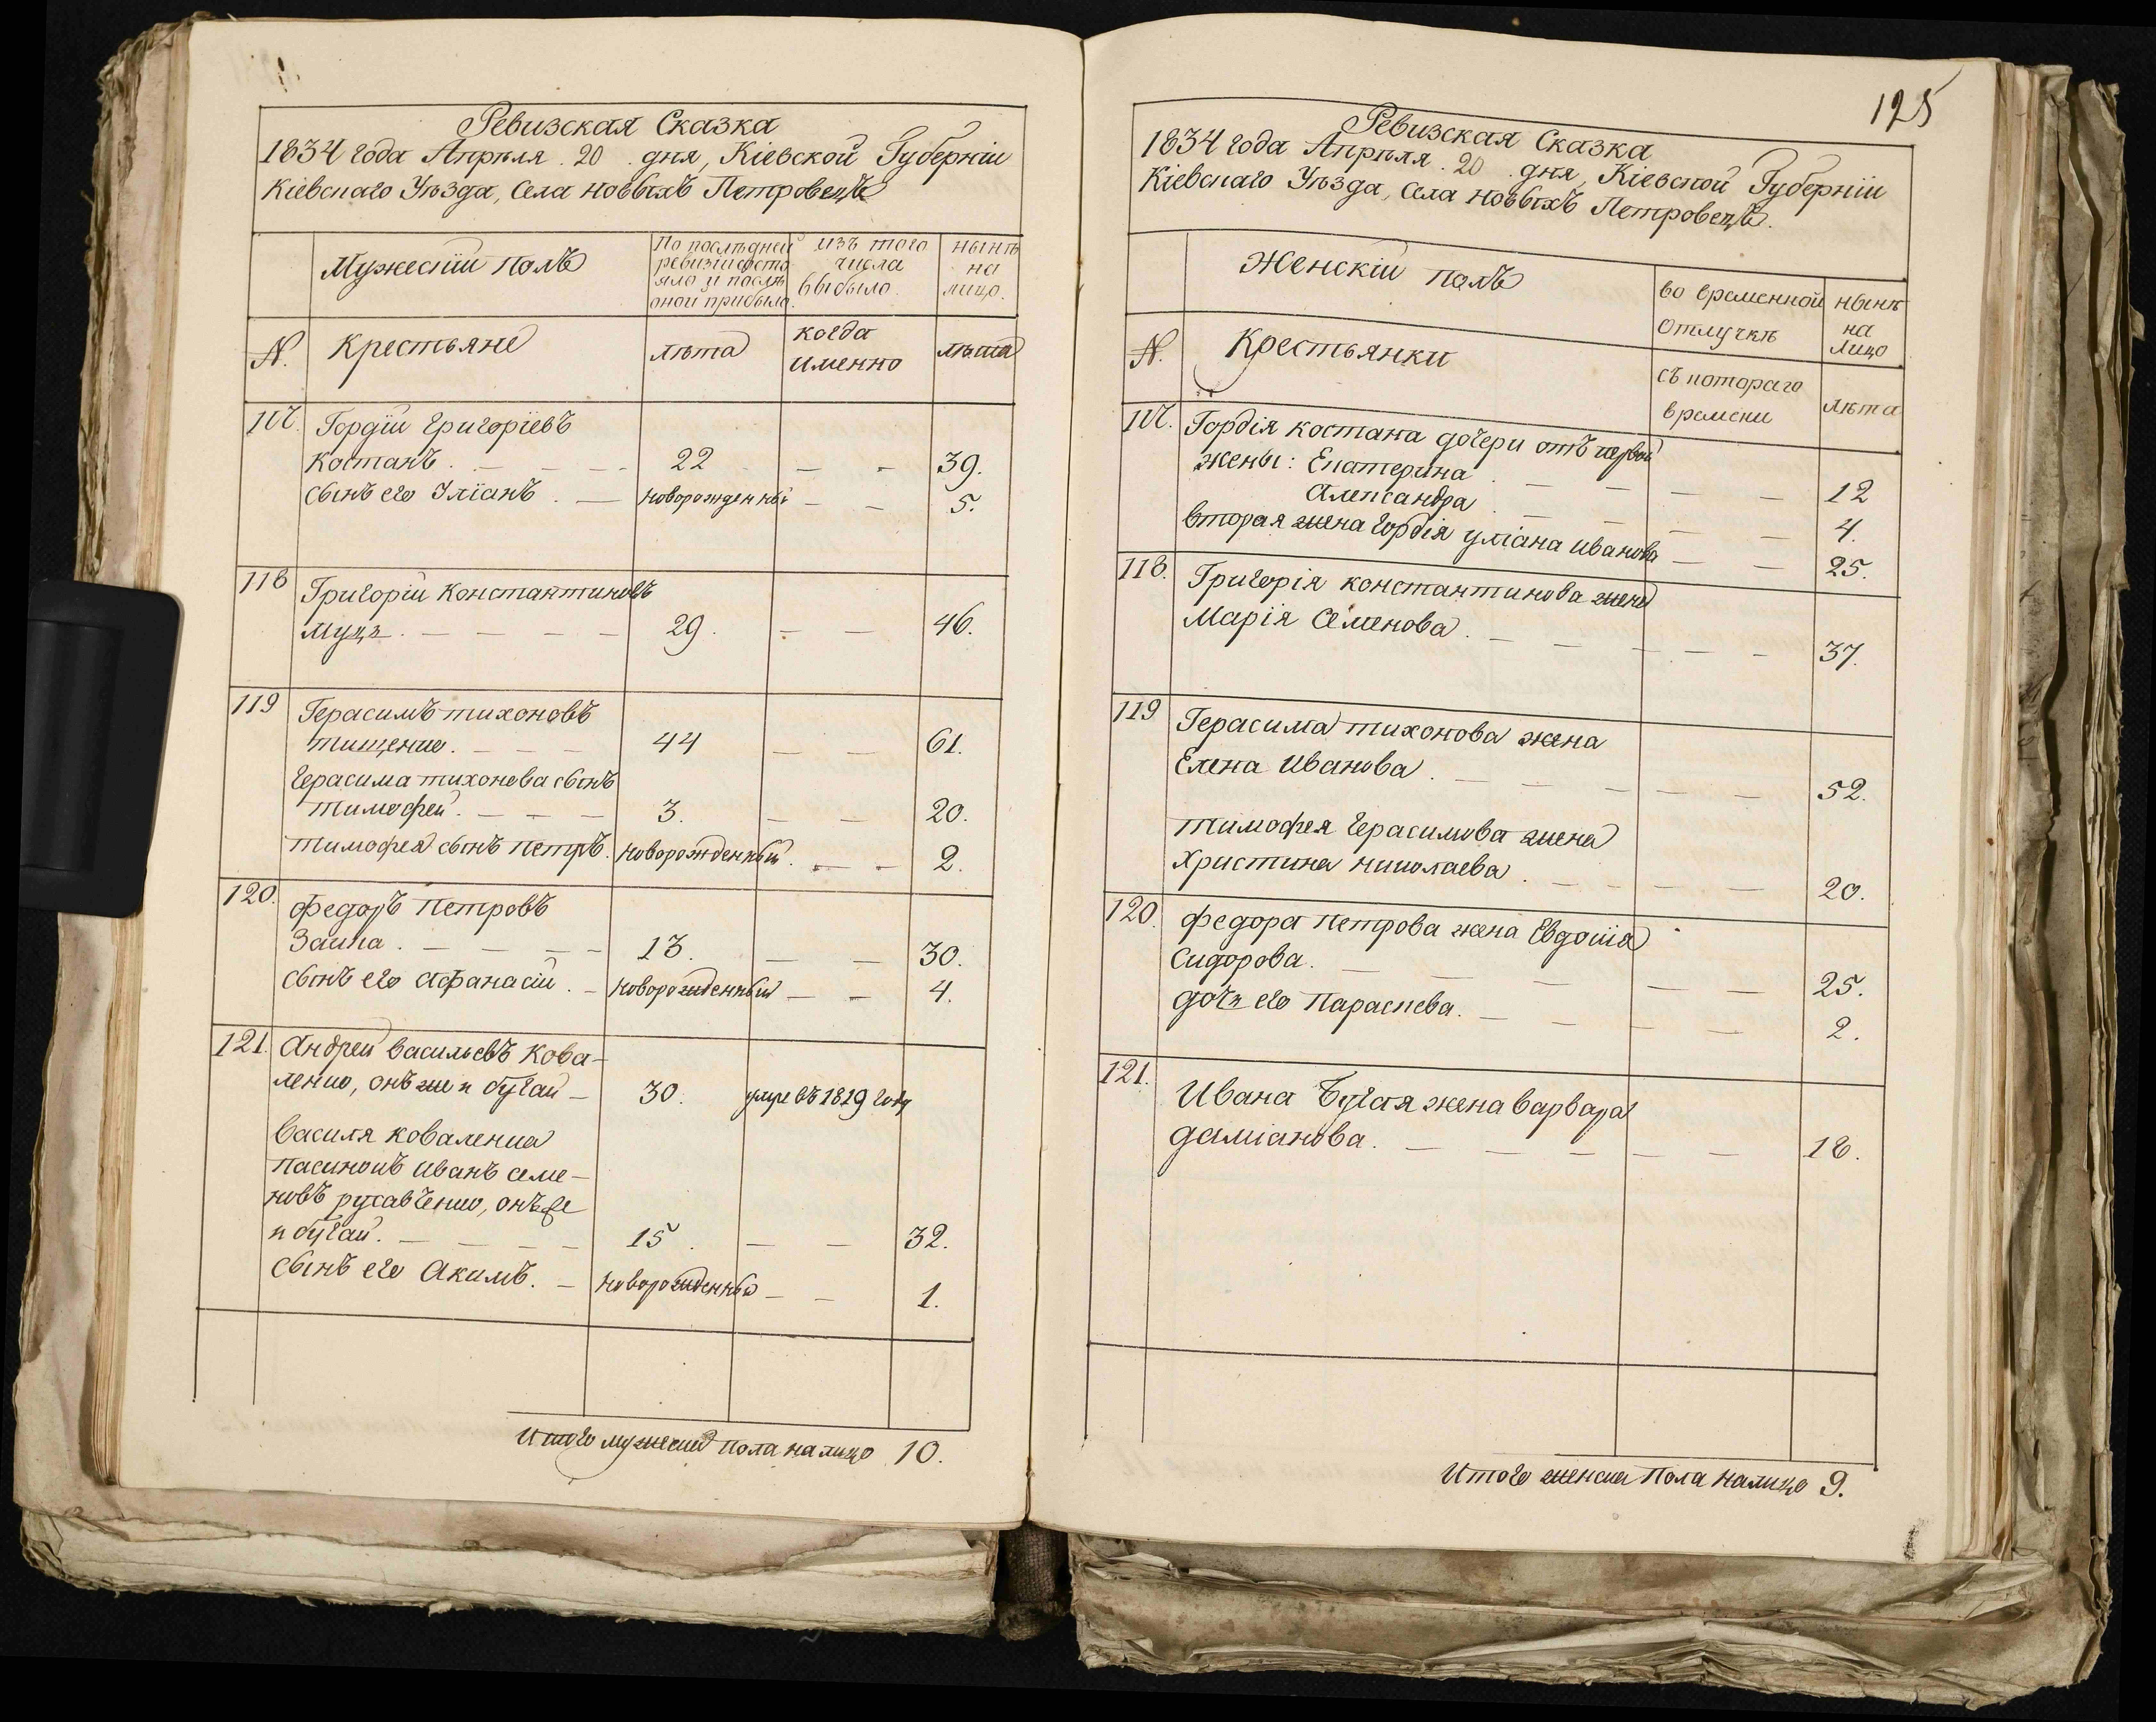 Ревизская Сказка
1834 года Апрѣля 20 дня, Кіевской Губерніи
Кіевскаго Уѣзда, Села новыхъ Петровецъ
Мужескій полъ
По послѣдней
ревизіи состо
яло и послѣ
оной прибыло.
изъ того
числа
выбыло.
нынѣ
на
лицо.
N.
Крестьяне
лѣта
когда
именно
лѣта
117. Гордій Григоріевъ
Костанъ. 22 39.
сынъ его Уліанъ. новорожденный 5.
118 Григорій Константиновъ
Муцъ. 29. 46.
119 Герасимъ тихоновъ
тищенко. 44 61.
Герасима тихонова сынъ
тимофей. 3. 20.
тимофея сынъ петръ. новорожденный. 2.
120. Федоръ Петровъ
Заика. 13. 30.
сынъ его Афанасій. новорожденный 4.
121. Андрей васильевъ Кова-
ленко, онъ же и бугай 30. умре въ 1819 году
Василя коваленка
пасинокъ Иванъ семе-
новъ русавченко, онъ же
и бугай. 15. 32.
сынъ его Акимъ. новорожденный 1.
Итого мужеска пола налицо 10.
125
Ревизская Сказка
1834 года Апрѣля 20 дня, Кіевской Губерніи
Кіевскаго Уѣзда, Села новыхъ Петровецъ.
Женскій полъ
во временной
отлучкѣ
нынѣ
на
лицо
N.
Крестьянки
съ котораго
времени
лѣта
117. Гордія костана дочери отъ первой
жены: Екатерина 12
Александра 4.
вторая жена Гордія уліана иванова 25.
118. Григорія константинова жена
Марія Семенова. 37.
119 Герасима тихонова жена
Елена Иванова. 52.
тимофея Герасимова жена
Христина николаева. 20.
120. федора петрова жена Евдокія
Сидорова. 25.
дочь его Параскева. 2.
121. Ивана Бугая жена варвара
даміанова. 18.
Итого женска пола налицо 9.